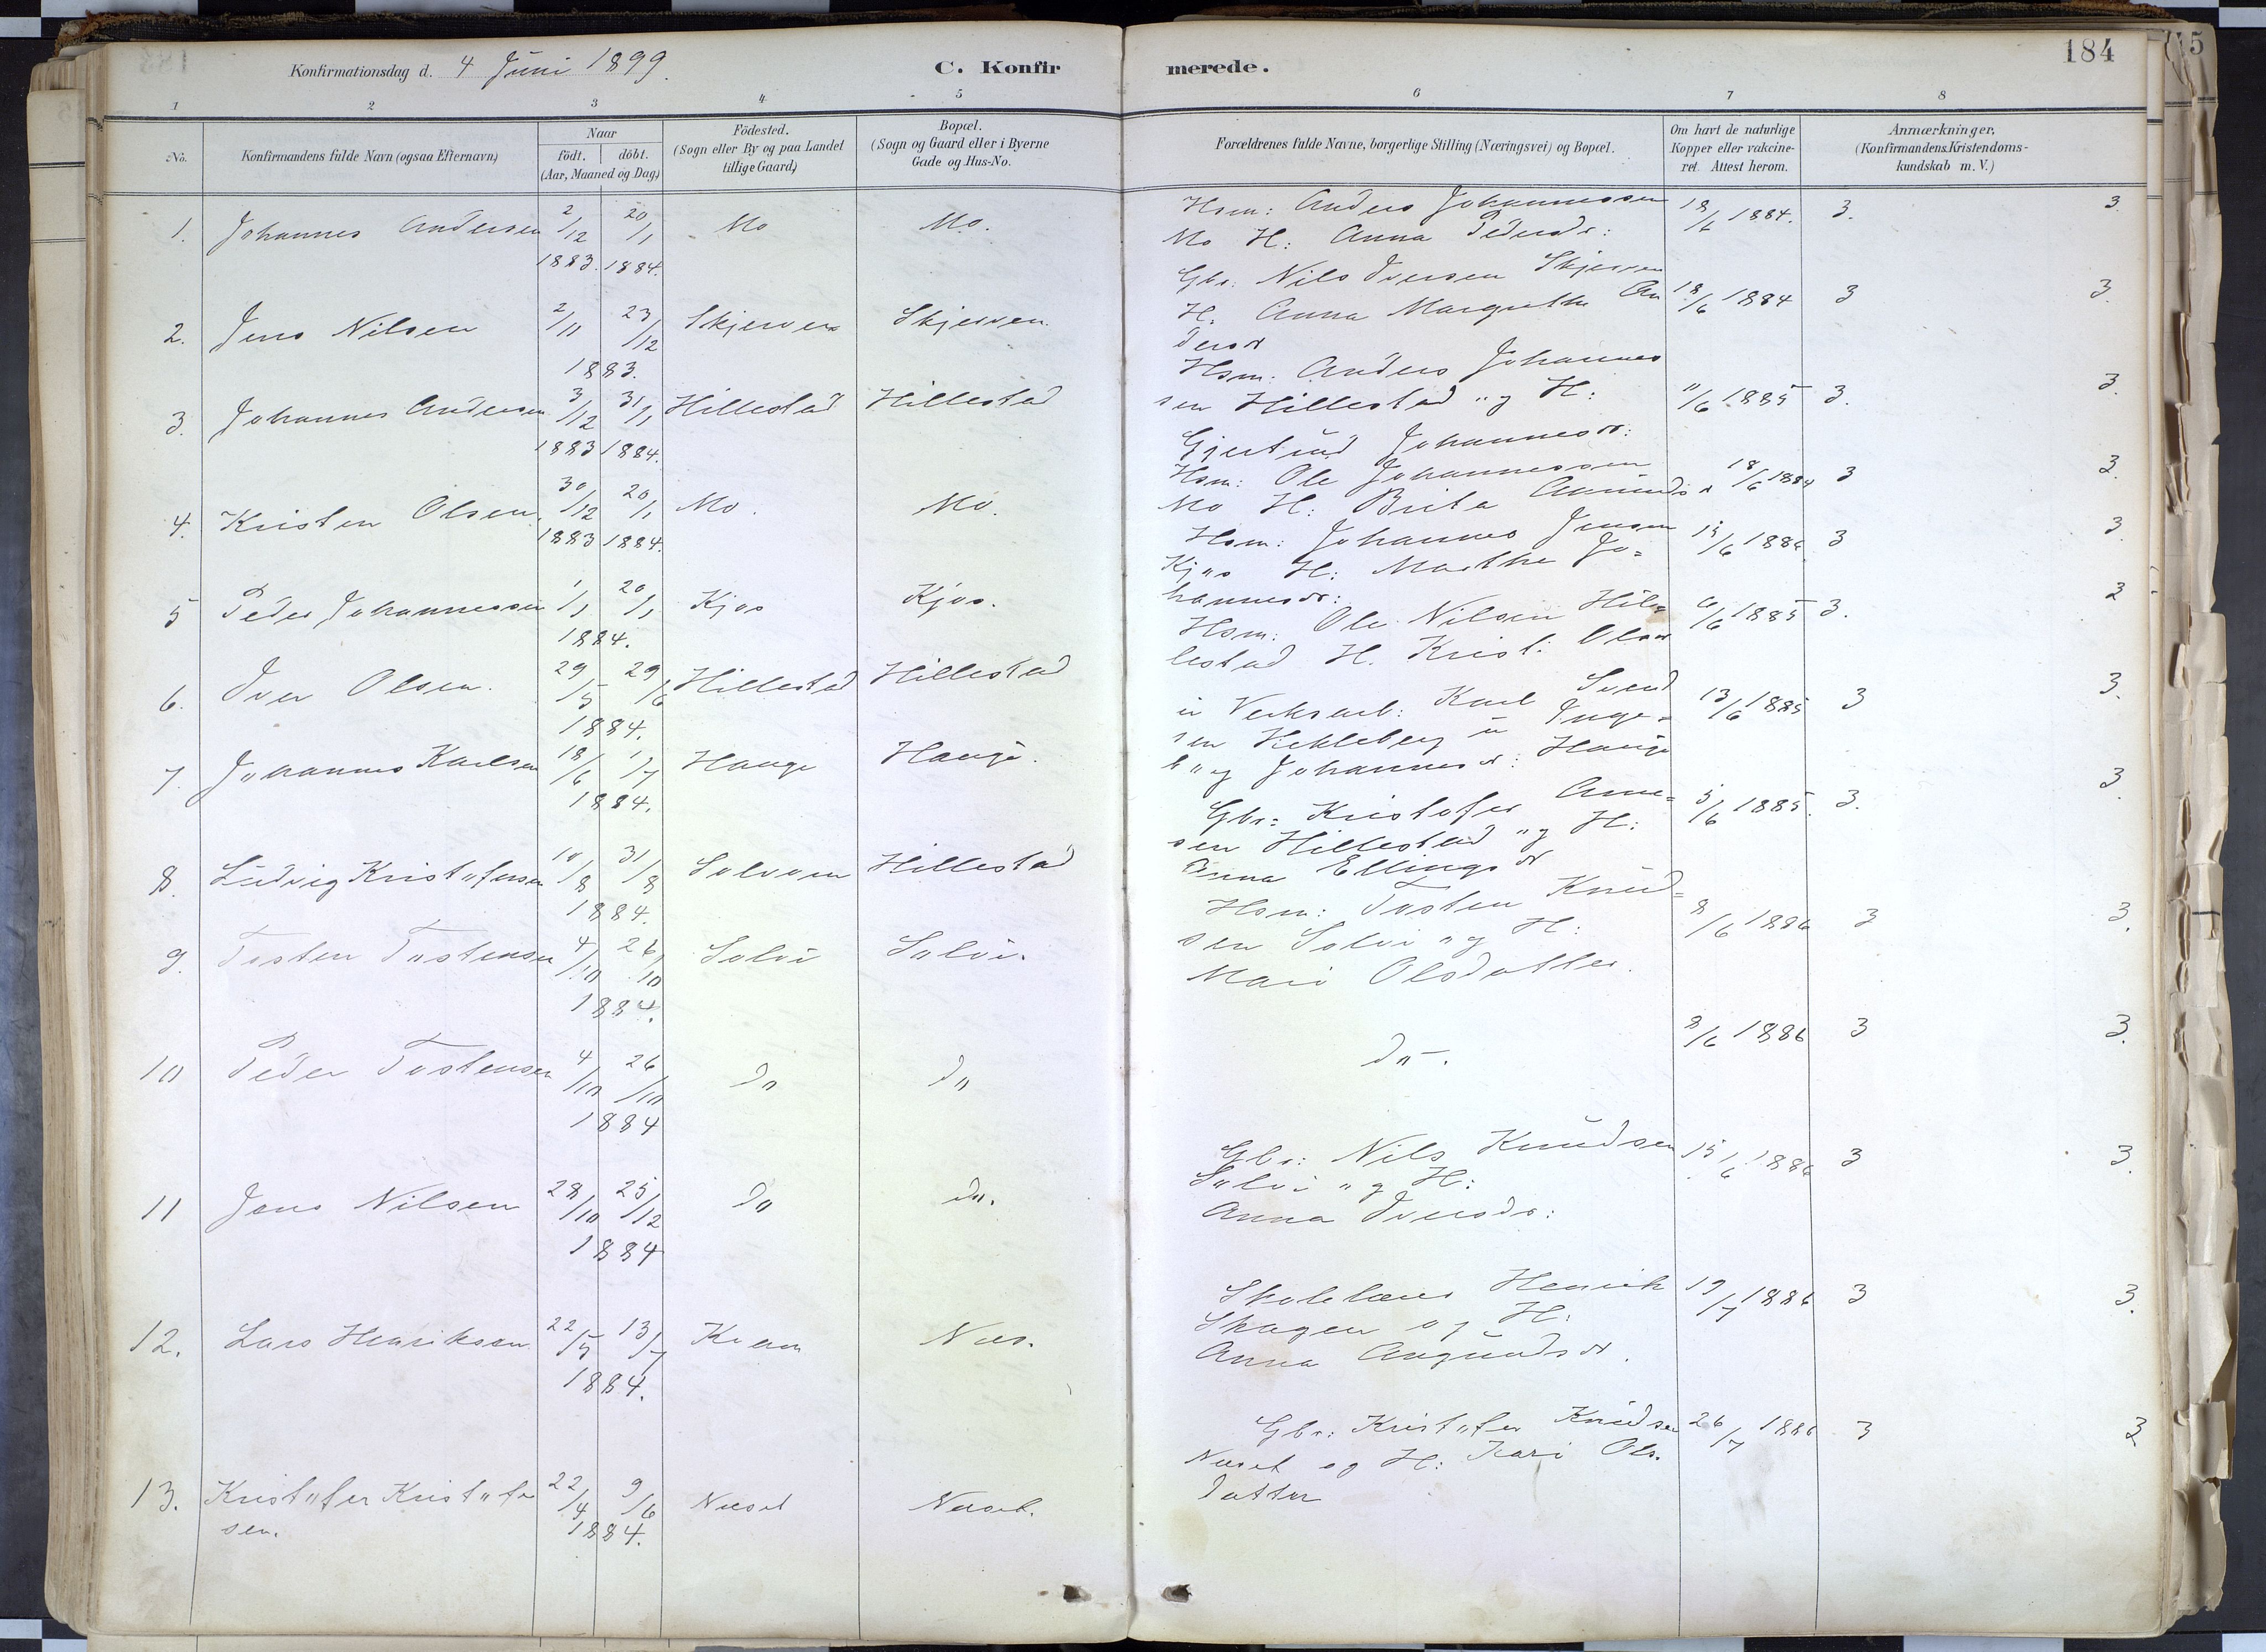 Konfirmationsdag d. 4 Juni 1899.
C. Konfirmerede.
184
1 2 3 4 5 6 7 8
No.
Konfirmandens fulde Navn (ogsaa Efternavn)
Naar
födt. döbt.
(Aar, Maaned og Dag.)
Födested.
(Sogn eller By og paa Landet
tillige Gaard)
Bopæl.
(Sogn og Gaard eller i Byerne
Gade og Hus-No.
Forældrenes fulde Navne, borgerlige Stilling (Næringsvei) og Bopæl.
Om havt de naturlige
Kopper eller vakcine-
ret. Attest herom.
Anmærkninger,
(Konfirmandens Kristendoms-
kundskab m. V.)
1. Johannes Andersen 2/12 1883. 20/1 1884. Mo Mo.
Hsm: Anders Johannessen
Mo H: Anna Pedersdr: 18/6 1884. 3. 3.
2. Jens Nilsen 2/11 23/12 1883. Skjerven Skjerven.
Gbr. Nils Iversen Skjerven
H. Anna Margrethe An
dersdr 18/6 1884 3 3.
3. Johannes Andersen 3/12 1883 31/1 1884. Hillestad Hillestad
Hsm. Anders Johannes
sen Hillestad og H:
Gjertrud Johannesdr: 11/6 1885 3. 3.
4. Kristen Olsen. 30/12 1883 20/1 1884. Mo. Mo.
Hsm: Ole Johannessen
Mo H: Brita Amundsdr 18/6 1884 3 3.
5 Peder Johannessen 1/1 20/1 1884. Kjos Kjos.
Hsm: Johannes Jensen
Kjos H: Marthe Jo=
hannesdr: 15/6 1886 3 3.
6. Iver Olsen. 29/5 29/6 1884. Hillestad Hillestad
Hsm: Ole Nilsen Hil=
lestad H. Krist. Olsdr 6/6 1885 3. 3
7. Johannes Karlsen 18/6 1/7 1884. Hauge Hauge.
u Verksarb: Karl Svend
sen Kekleberg u Inge=
b og Johannesdr: Hauge 13/6 1885 3 3.
8. Ludvig Kristofersen 10/8 31/8 1884. Solvom Hillestad
Gbr: Kristofer Arne=
sen Hillestad og H:
Anna Ellingsdr 5/6 1885. 3. 3
9. Tosten Tostensen 4/10 26/10 1884. Solvi Solvi.
Hsm: Tosten Knud=
sen Solvi og H:
Mari Olsdatter. 8/6 1886 3 3.
10 Peder Tostensen 4/10 26/10 1884 do do
do-. 8/6 1886 3 3.
11 Jens Nilsen 28/10 25/12 1884 do do.
Gbr: Nils Knudsen
Solvi og H:
Anna Iversdr: 15/6 1886 3 3.
12. Lars Henriksen 22/5 13/7 1884. Kvam Nus.
Skolelærer Henrik
Skagen og H:
Anna Angundsdr. 19/7 1886 3 3.
13. Kristofer Kristofer
sen. 22/4 9/6 1884. Nuset Nuset.
Gbr: Kristofer Knudsen
Nuset og H: Kari Ols.
datter 26/7 1886 3 3